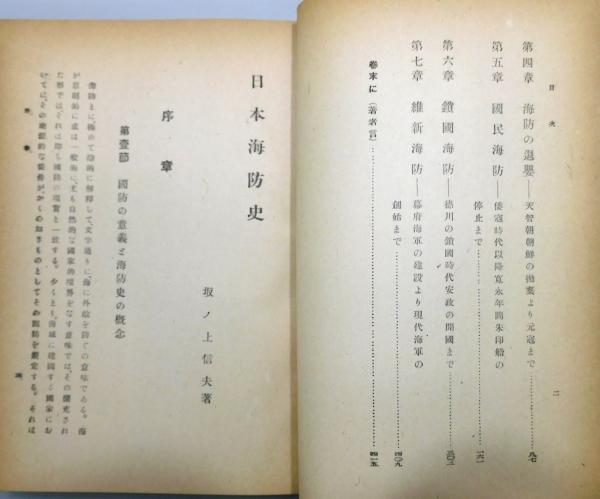 目次
第四章 海防の退嬰――天智朝朝鮮の抛棄より元寇まで…………八七
第五章 國民海防――倭寇時代以降寛永年間朱印船の
停止まで…………一六一
第六章 鎖國海防――徳川の鎖國時代安政の開國まで…………三〇三
第七章 維新海防――幕府海軍の建設より現代海軍の
創始まで…………四〇九
卷末に(著者言)…………四一五
二
日本海防史
坂ノ上信夫著
序章
第壹節 國防の意義と海防史の概念
海防とは、極めて端的に解釋して、文字通りに、海に外敵を防ぐの意味である。海
が原則的に或は一般的に、尤も自然的な國家的境界をなす意味では、その擴充され
た形では、それは即ち國防の現實と一致する。少くとも、海域に建國する國家にお
いては、その地理的な條件が、かくの如きものとしてその國防を規定する。それは
序章